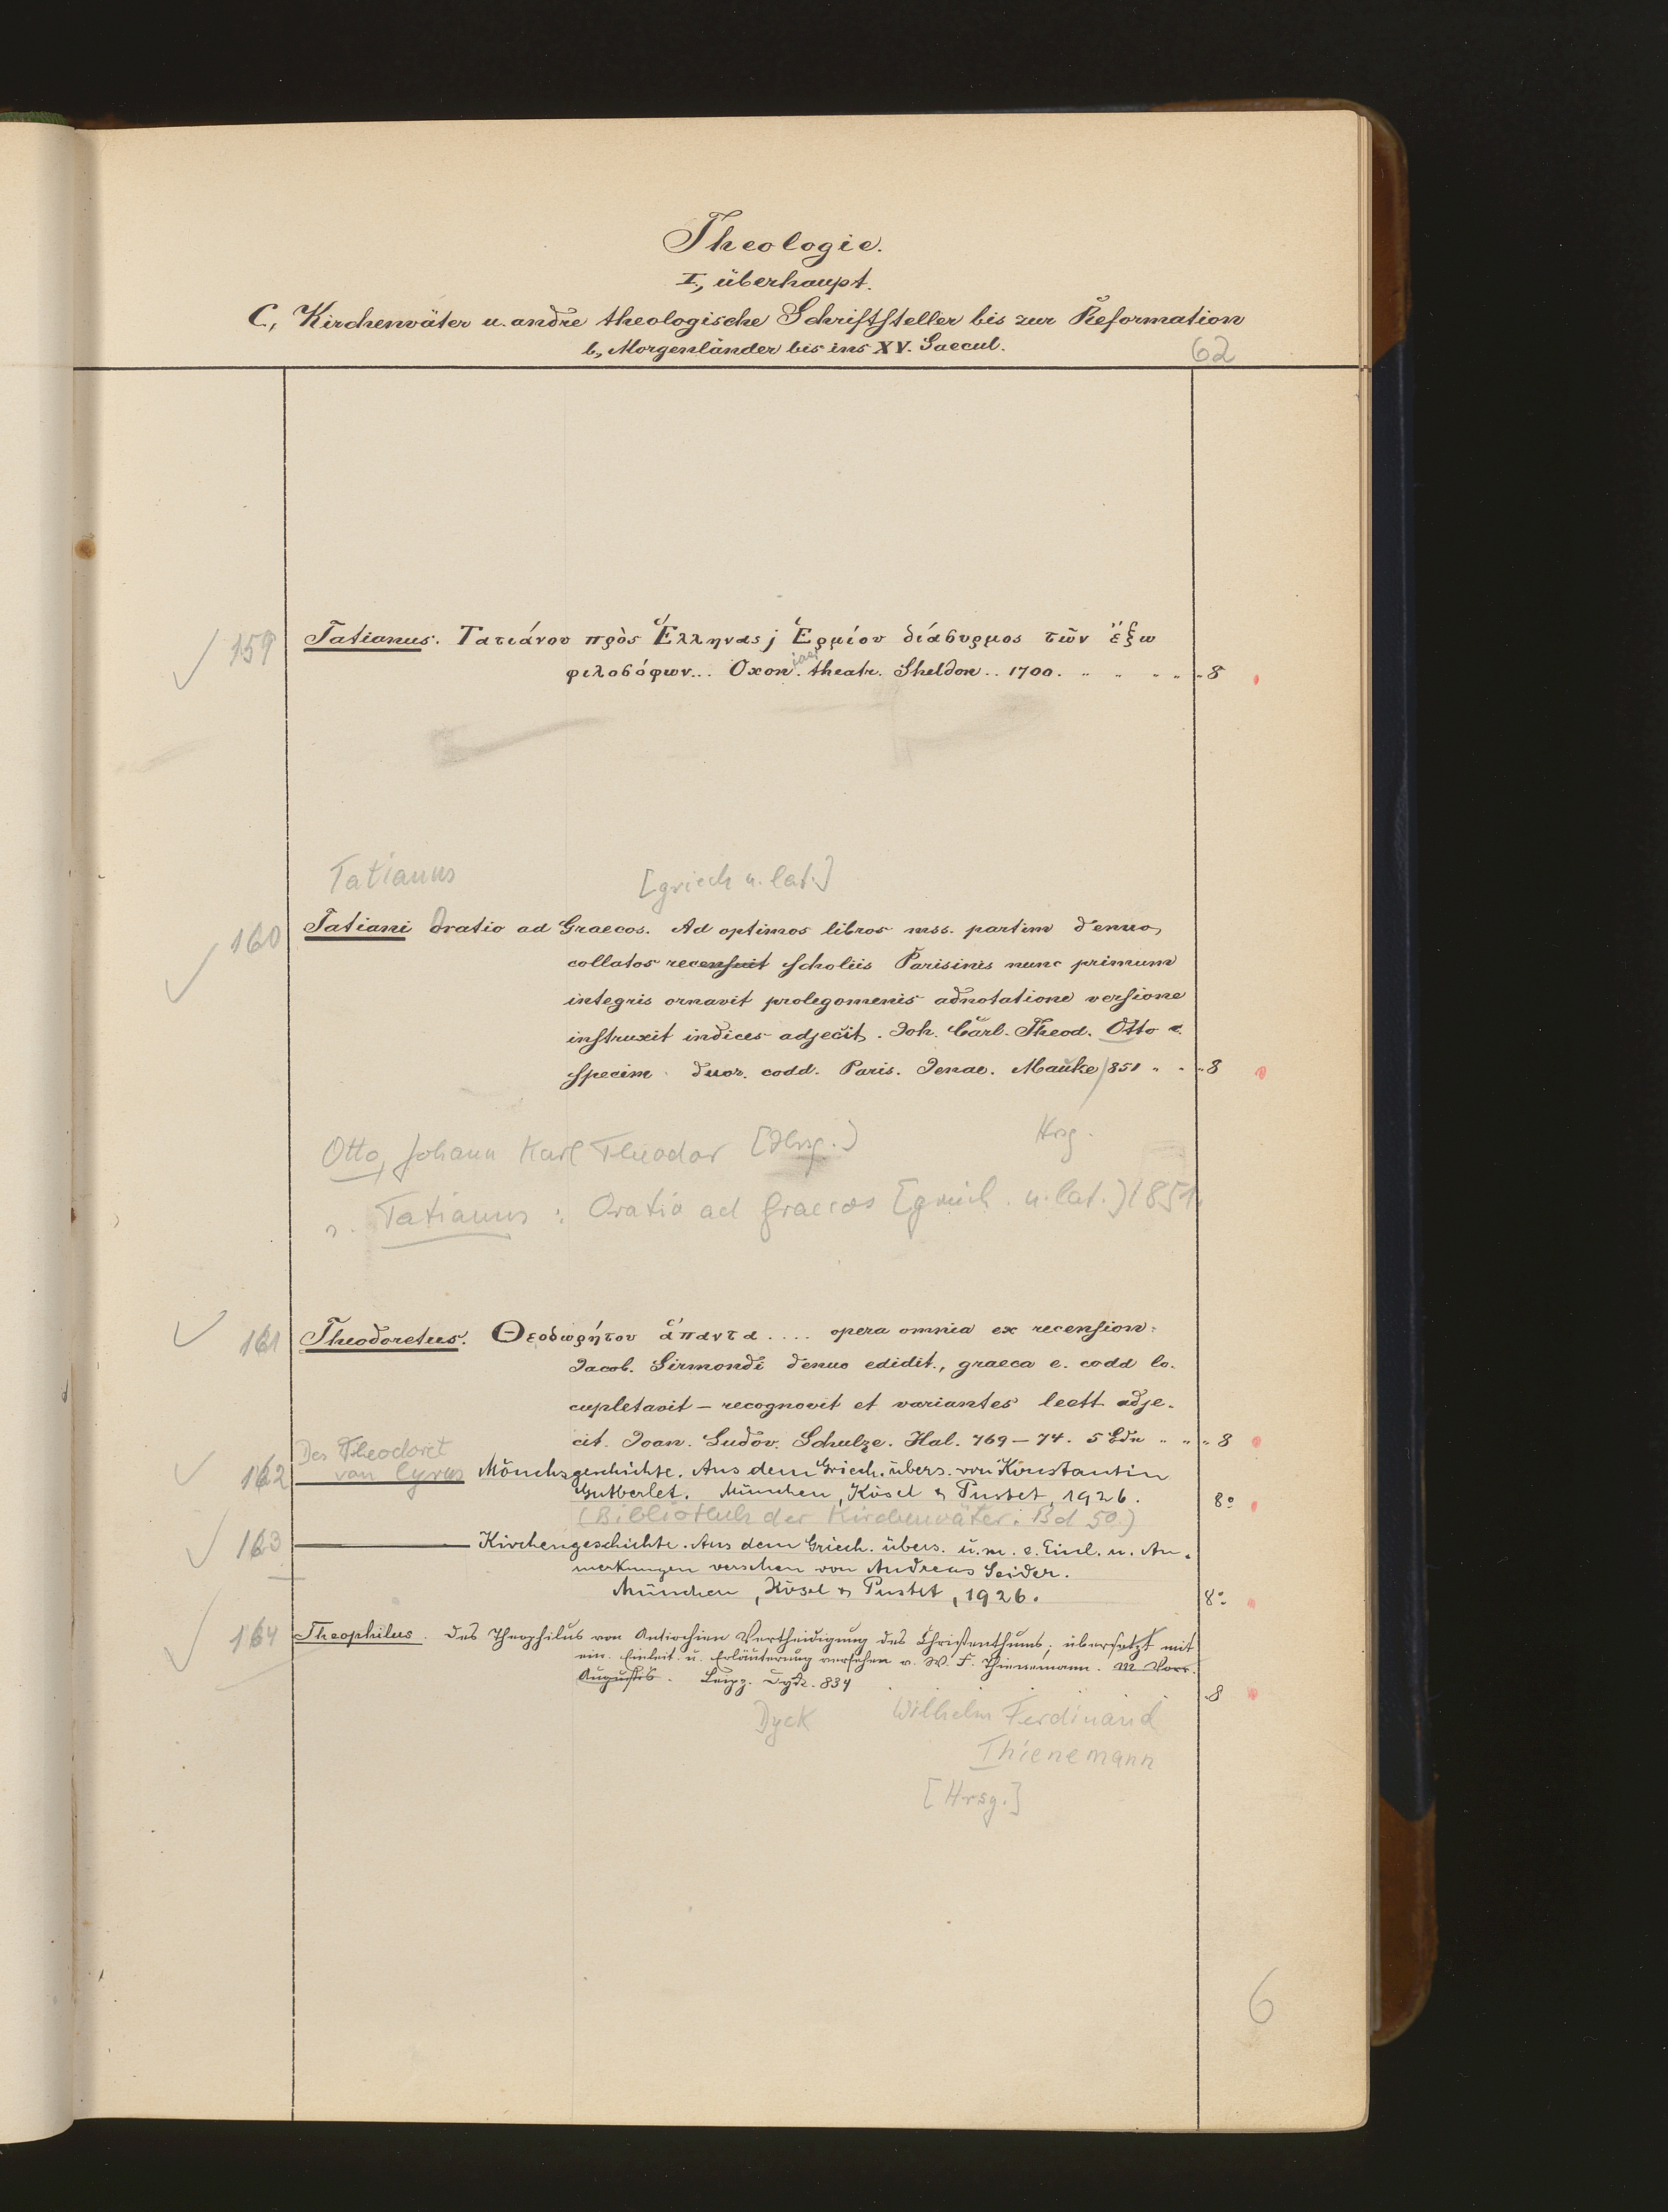 Theologie.
I, überhaupt.
C, Kirchenväter u. andre theologische Schriftsteller bis zur Reformation
b, Morgenländer bis ins XV. Saecul.
62
159
Tatianus. Τατιάνου πρὸς Ἕλληνας; Ἑρμίου διάσυρμος τῶν ἔξω
φιλοσόφων... Oxon. theatr. Sheldon.. 1700. 8
Tatianus [griech u. lat.]
160
Tatiani Oratio ad Graecos. Ad optimos libros mss. partim denuo
collatos recensuit scholiis Parisinis nunc primum
integris ornavit prolegomenis adnotatione versione
instruxit indices adjecit. Joh. Carl. Theod. Otto c.
specim. duor. codd. Paris. Jenae. Mauke 851 8
Hrsg.
Otto, Johann Karl Theodor [Hrsg.]
s. Tatianus: Oratio ad Graecos [griech. u. lat.] 1851
161
Theodoretus. Θεοδωρήτου ἅπαντα.... opera omnia ex recension:
Jacob. Sirmondi denuo edidit, graeca e. codd lo-
cupletavit – recognovit et variantes lectt adje-
cit. Joan. Ludov. Schulze. Hal. 769–74. 5 Bde 8
162
Des Theodoret
von Cyrus Mönchsgeschichte. Aus dem Griech. übers. von Konstantin
Gutberlet. München, Kösel & Pustet, 1926. 8º
(Bibliothek der Kirchenväter. Bd 50.)
163
Kirchengeschichte. Aus dem Griech. übers. u. m. e. Einl. u. An-
merkungen versehen von Andreas Seider.
München, Kösel & Pustet, 1926. 8º
164
Theophilus. Des Theophilus von Antiochien Vertheidigung des Christenthums; übersetzt mit
ein. Einleit. u. Erläuterung versehen v. W. F. Thienemann. M Vorr.
Augustis. Leipz. Dyk. 834 8
Dyck Wilhelm Ferdinand
Thienemann
[Hrsg.]
6